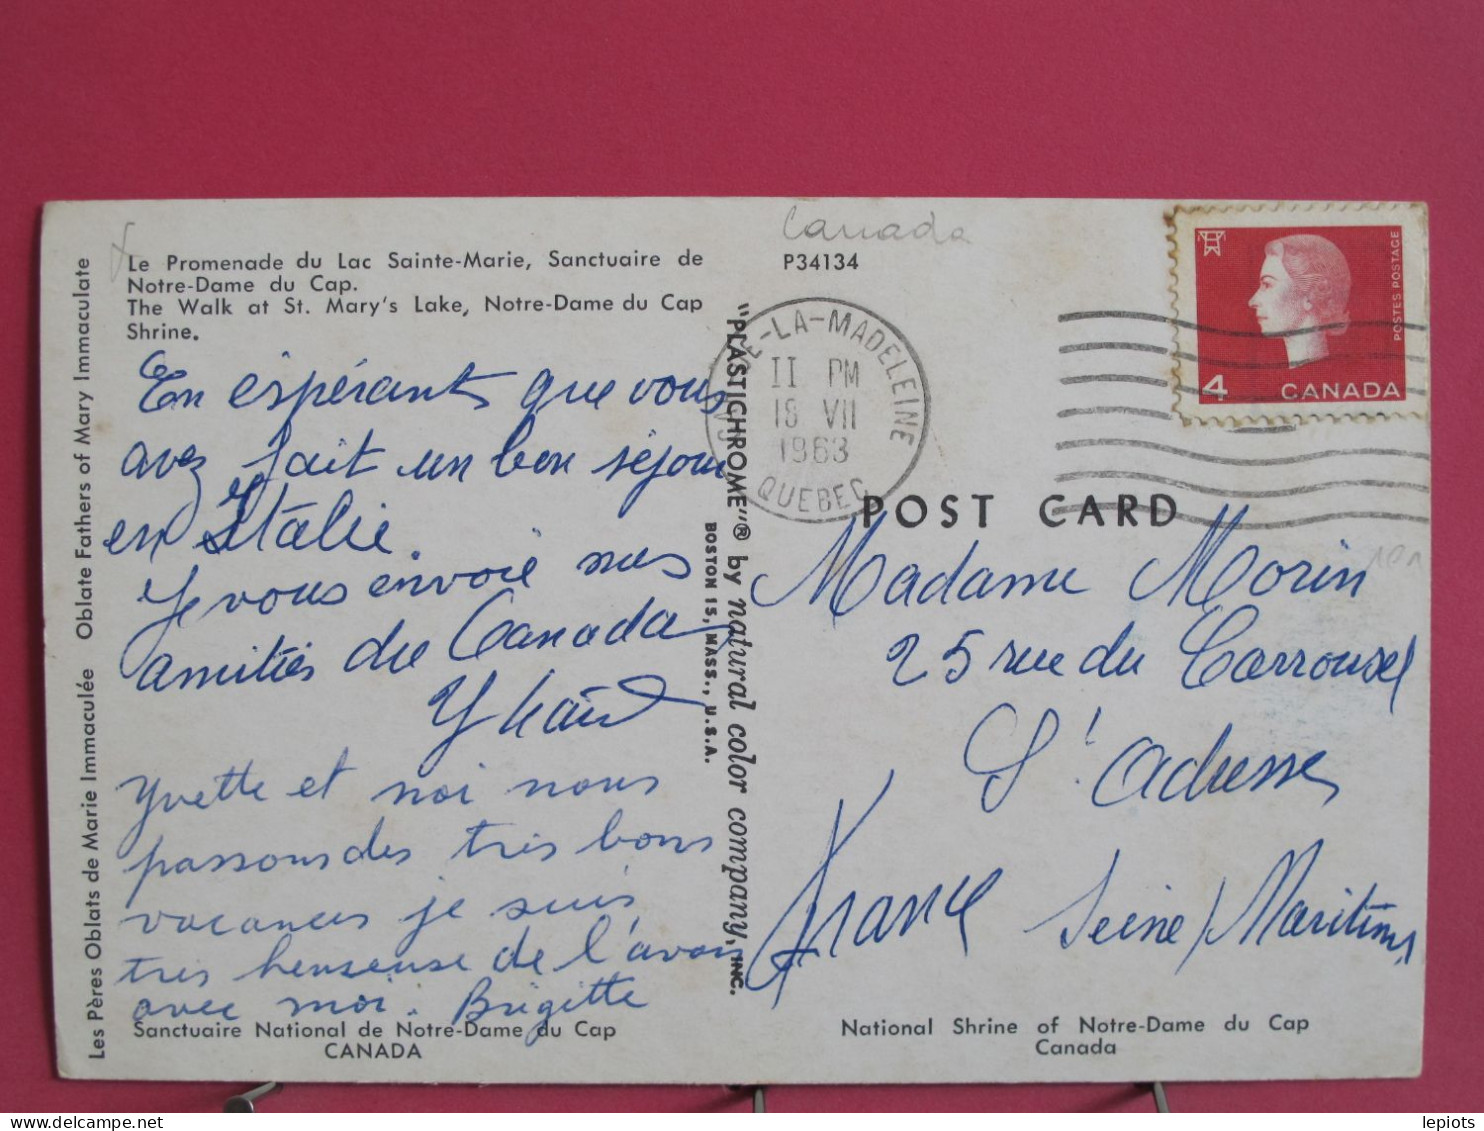 Canada
P34134
Le Promenade du Lac Sainte-Marie, Sanctuaire de
Notre-Dame du Cap.
The Walk at St. Mary's Lake, Notre-Dame du Cap
Shrine.
En espérant que vous
avez fait un bon séjour
en Italie.
Je vous envoie mes
amitiés du Canada
Yvette et moi nous
passons des très bons
vacances je suis
très heureuse de l'avoir
avec moi. Brigitte
Sanctuaire National de Notre-Dame du Cap
CANADA
Les Pères Oblats de Marie Immaculée Oblate Fathers of Mary Immaculate
"PLASTICHROME"® by natural color company, INC.
BOSTON 15, MASS., U.S.A.
-LA-MADELEINE
II PM
18 VII
1963
QUEBEC
POSTES POSTAGE
4 CANADA
POST CARD
Madame Morin
25 rue du Carrousel
St' Adresse
Seine / Maritime
France
National Shrine of Notre-Dame du Cap
Canada
lepiots